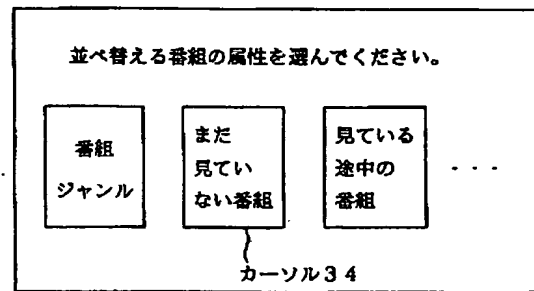 並べ替える番組の属性を選んでください。
番組
ジャンル
まだ
見てい
ない番組
見ている
途中の
番組
・・・
カーソル34